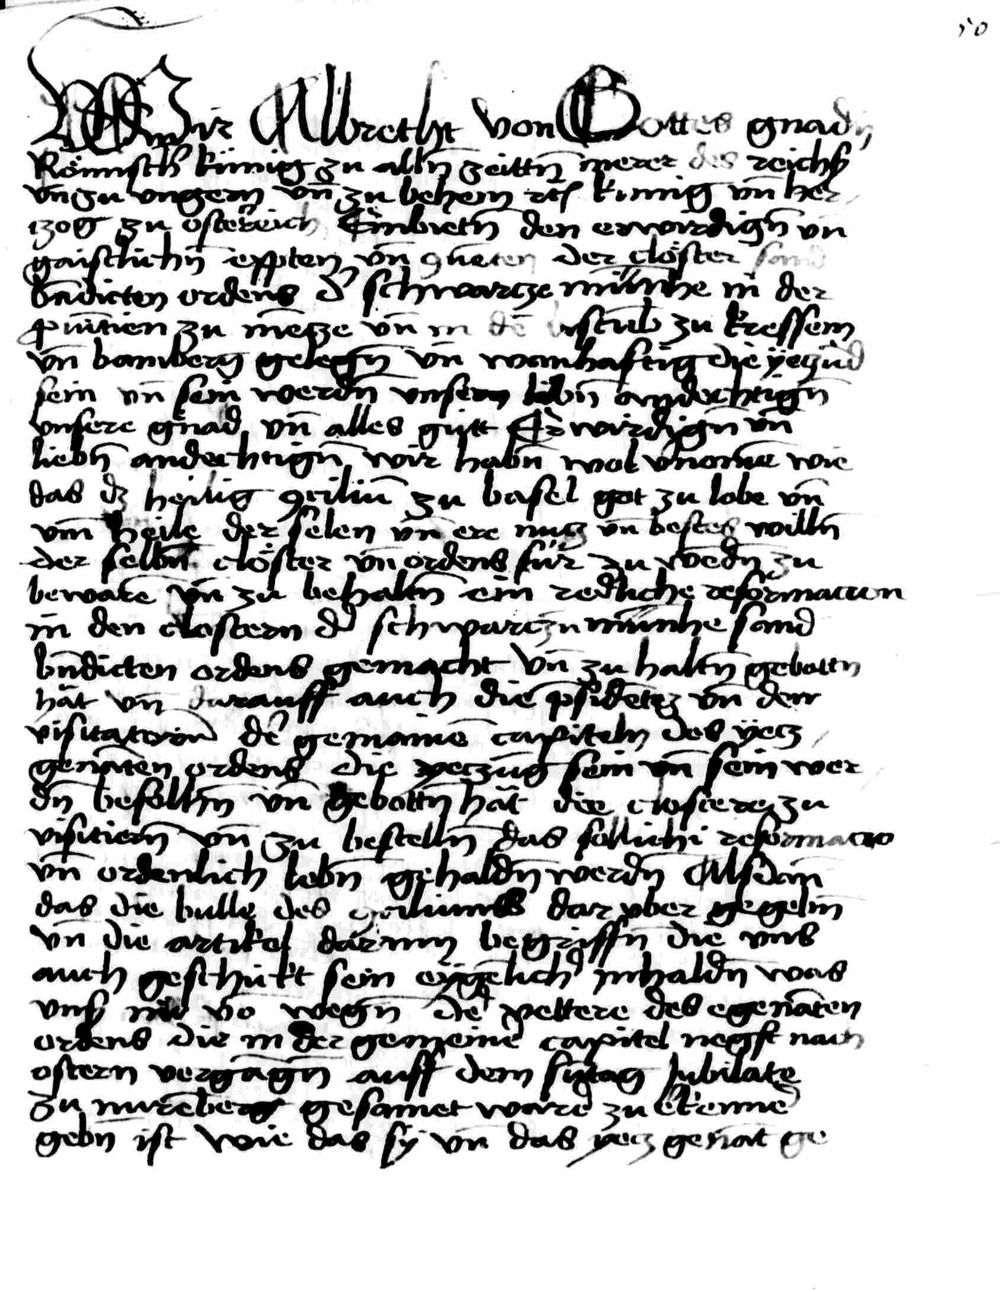 50
Wir Albrecht von Gottes gnadn
Römisch kunig zu alln zeittn merer des reichs
vn zu vngern vn zu behem etc kunig vn her
tzog zu osterreich Embietn den erwirdign vn
gaistlichn eppten vn 9uenten der clöster sand
bndicten ordens d' schwartze münche in der
puintien zu mentze vn in de bistub zu kressem
vn bamberg gelegn vn wonhaftig die yetzud
sein vn sein werdn vnsern libn andechtign
vnsere gnad vn alles gutt Erwirdign vn
liebn andechtign wir habn wol vnome wie
das dz heilig 9ciliu zu basel got zu lobe vn
vm heile der selen vn ere nutz vn bestes willn
der selbn clöster vn ordens für zu wedn zu
beware vn zu behaltn ein redliche reformacion
in den clostern d' schwartzn münche sand
bndicten ordens gemacht vn zu haltn gebottn
hat vn darauff auch die psidetz vn den
visitatorn de gemaine capiteln des yetz
genaten ordens die yetzug sein vn sein wer
dn befolhn vn gebottn hat die clostere zu
visitiern vn zu bestelln das sollichi reformacio
vn ordenlich lebn gehaldn werdn Alsdan
das die bulle des 9ciliums dar vber gegebn
vn die artikel darinn begriffn die vns
auch geschikt sein eygelich inhaldn was
vns nu vo wegn der vettere des egenaten
ordens die in der gemeine capitel negst nach
ostern vergagn auff dem sutag Jubilate
zu nurenberg gesamet ware zu erkenne
gebn ist wie das sy vn das yetz genat ge